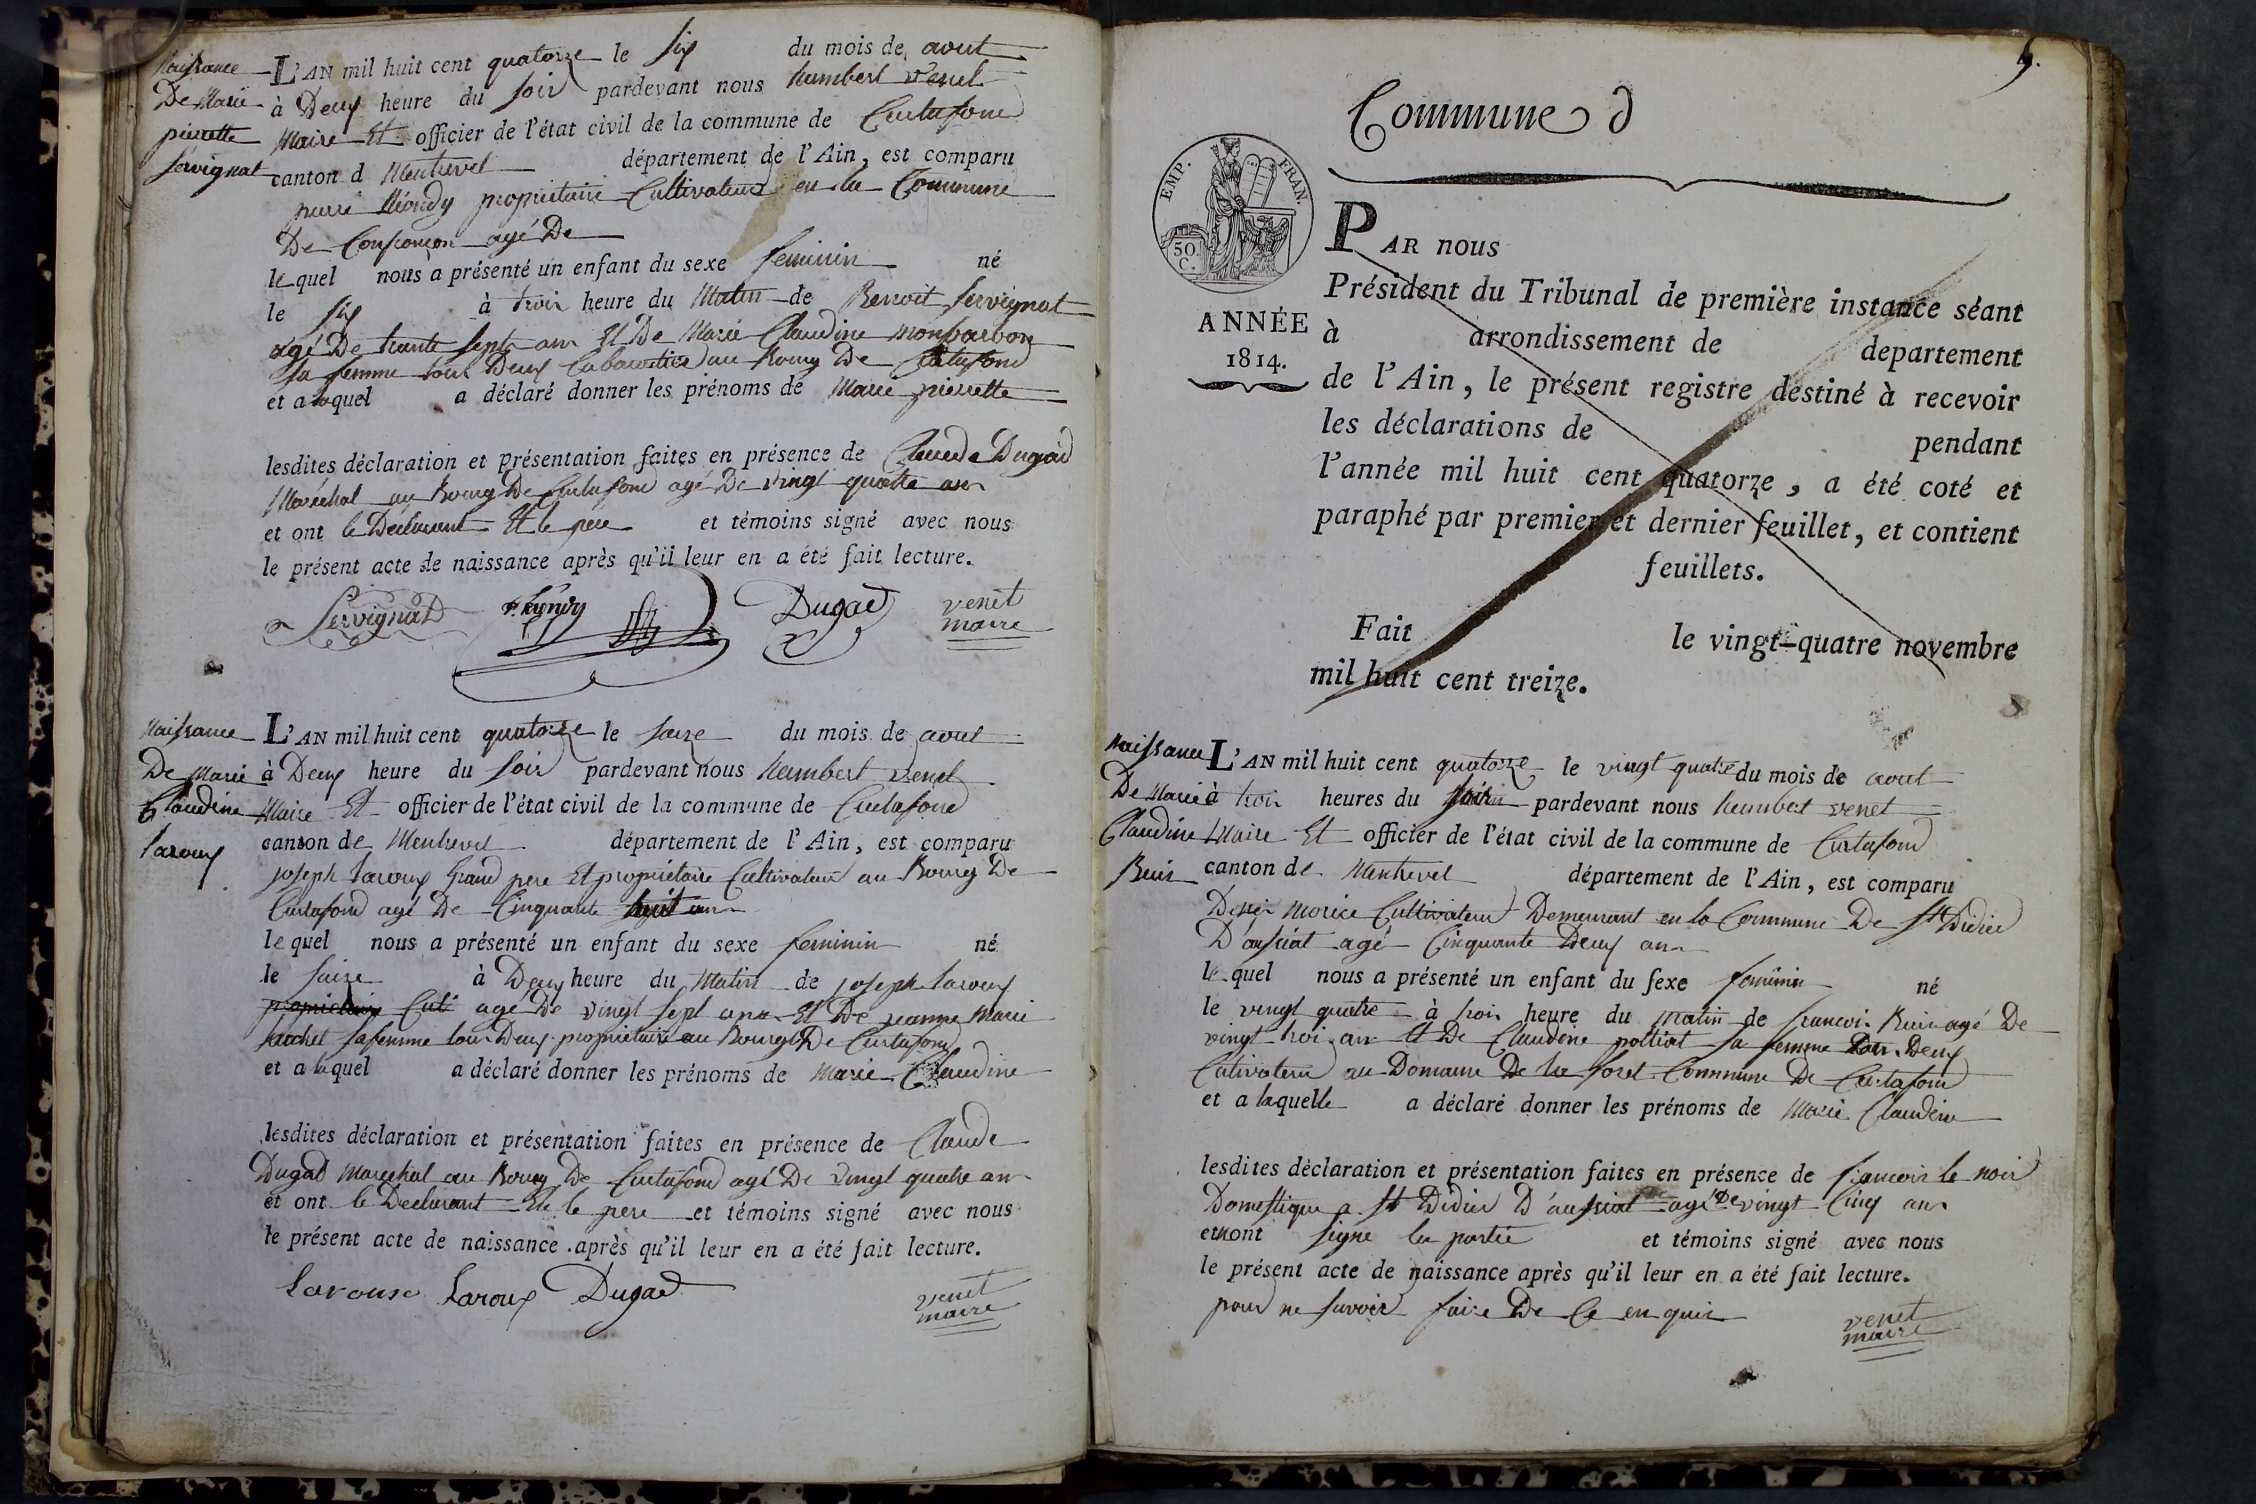 Naissance
De Marie
pierrette
servignat
L'AN mil huit cent quatorze le six du mois de aout
à Deux heure du soir pardevant nous humbert venet
Maire Et officier de l'état civil de la commune de Curtafond
canton d Montrevel département de l'Ain, est comparu
pierre propriétaire Cultivateur en la Commune
De Confrançon agé De
lequel nous a présenté un enfant du sexe feminin né
le six à trois heure du Matin de Benoit servignat
agé De trente sept ans Et De Marie Claudine monbarbon
sa femme tous Deux au Bourg De Curtafond
et a laquel a déclaré donner les prénoms de Marie pierrette
lesdites déclaration et présentation faites en présence de Claude Dugad
Maréchal au Bourg De Curtafond agé De vingt quatre ans
et ont le Déclarant Et le père et témoins signé avec nous
le présent acte de naissance après qu'il leur en a été fait lecture.
Servignat Dugad venet
maire
Naissance
De Marie
Claudine
Laroux
L'AN mil huit cent quatorze le saize du mois de aout
à Deux heure du soir pardevant nous humbert venet
Maire Et officier de l'état civil de la commune de Curtafond
canton de Montrevel département de l'Ain, est comparu
joseph Laroux Grand pere Et propriétaire Cultivateur au Bourg De
Curtafond agé De Cinquante huit ans
lequel nous a présenté un enfant du sexe feminin né
le saize à Deux heure du Matin de joseph Laroux
propriétaire Cult agé De vingt sept ans Et De jeanne Marie
sa femme tous Deux propriétaire au Bourg De Curtafond
et a laquel a déclaré donner les prénoms de Marie Claudine
lesdites déclaration et présentation faites en présence de Claude
Dugad Marechal au Bourg De Curtafond agé De vingt quatre ans
et ont le Declarant Et le pere et témoins signé avec nous
le présent acte de naissance après qu'il leur en a été fait lecture.
Laroux Dugad venet
maire
9.
Commune d
EMP. FRAN.
50 C.
ANNÉE
1814.
PAR nous
Président du Tribunal de première instance séant
à arrondissement de departement
de l'Ain, le présent registre destiné à recevoir
les déclarations de pendant
l'année mil huit cent quatorze, a été coté et
paraphé par premier et dernier feuillet, et contient
feuillets.
Fait le vingt-quatre novembre
mil huit cent treize.
Naissance
De Marie
Claudine
Buis
L'AN mil huit cent quatorze le vingt quatre du mois de aout
à trois heures du soir pardevant nous humbert venet
Maire Et officier de l'état civil de la commune de Curtafond
canton de Montrevel département de l'Ain, est comparu
Denis morice Cultivateur Demeurant en la Commune De St Didier
D'aussiat agé Cinquante Deux ans
lequel nous a présenté un enfant du sexe feminin né
le vingt quatre à trois heure du matin de francois Buis agé De
vingt trois ans Et De Claudine poltiat sa femme tous Deux
Cultivateur au Domaine De la foret Commune De Curtafond
et a laquelle a déclaré donner les prénoms de Marie Claudine
lesdites déclaration et présentation faites en présence de francois le noir
Domestique a St Didier D'aussiat agé De vingt Cinq ans
et nont signé la partie et témoins signé avec nous
le présent acte de naissance après qu'il leur en a été fait lecture.
pour ne savoir faire De Ce en quis
venet
maire